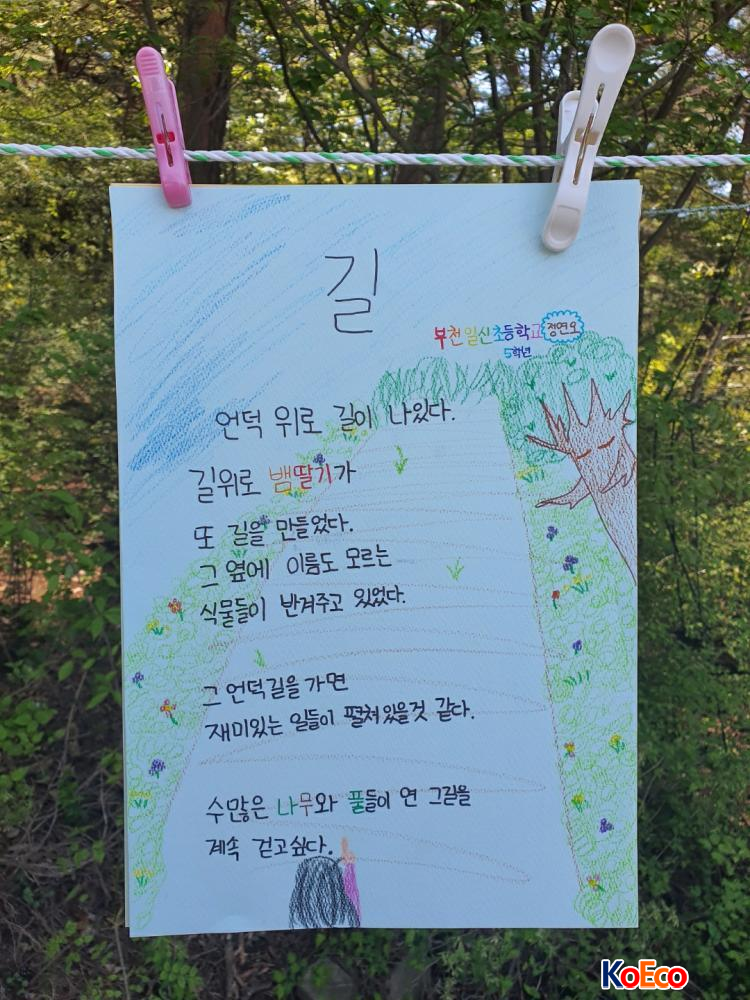 길
부천일신초등학교 정연오
5학년
언덕 위로 길이 나있다.
길위로 뱀딸기가
또 길을 만들었다.
그 옆에 이름도 모르는
식물들이 반겨주고 있었다.
그 언덕길을 가면
재미있는 일들이 펼쳐있을것 같다.
수많은 나무와 풀들이 연 그길을
계속 걷고싶다.
KoEco